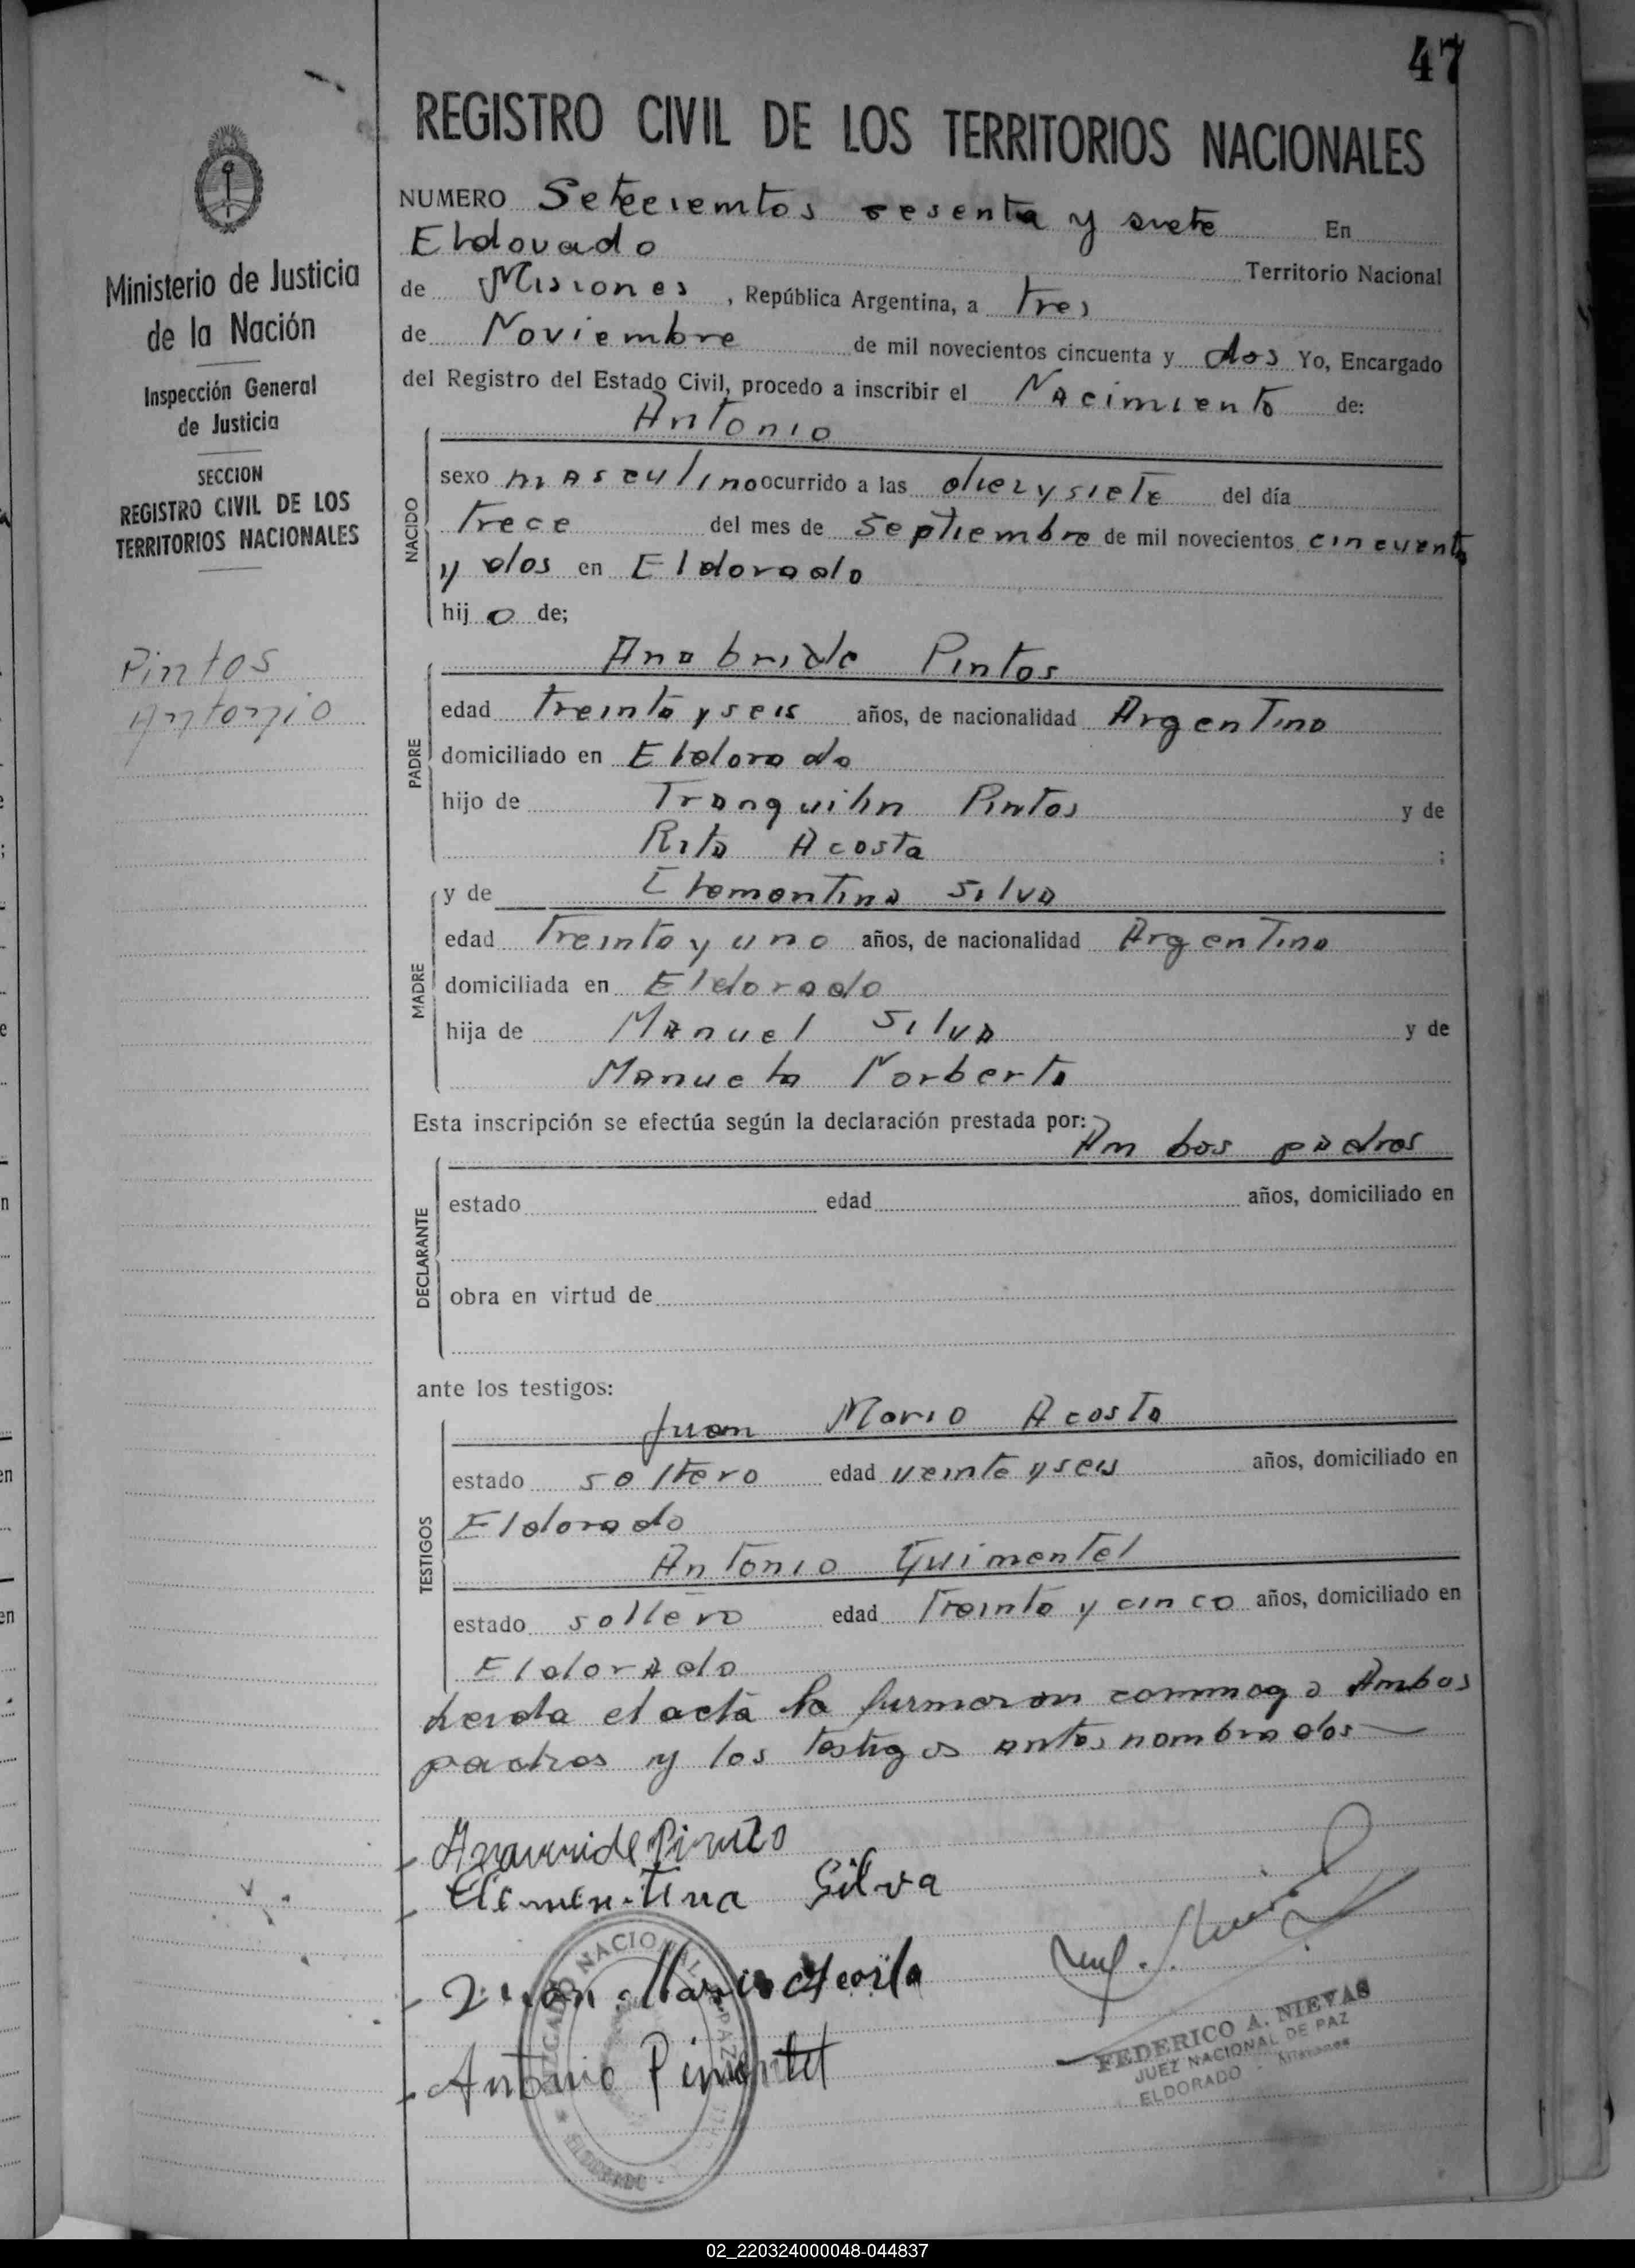 47
REGISTRO CIVIL DE LOS TERRITORIOS NACIONALES
Ministerio de Justicia
de la Nación
Inspección General
de Justicia
SECCION
REGISTRO CIVIL DE LOS
TERRITORIOS NACIONALES
Pintos
Antonio
NUMERO Setecientos sesenta y siete En
Eldorado
Territorio Nacional
de Misiones, República Argentina, a tres
de Noviembre de mil novecientos cincuenta y dos Yo, Encargado
del Registro del Estado Civil, procedo a inscribir el Nacimiento de:
NACIDO
Antonio
sexo masculino ocurrido a las diez y siete del día
trece del mes de Septiembre de mil novecientos cincuenta
y dos en Eldorado
hijo de;
PADRE
Pintos
edad treinta y seis años, de nacionalidad Argentina
domiciliado en Eldorado
hijo de Tranquilin Pintos y de
Rita Acosta ;
MADRE
y de Clementina Silva
edad treinta y uno años, de nacionalidad Argentina
domiciliada en Eldorado
hija de Manuel Silva y de
Manuela Norberta
Esta inscripción se efectúa según la declaración prestada por:
Ambos padres
DECLARANTE
estado edad años, domiciliado en
obra en virtud de
ante los testigos:
TESTIGOS
Juan Mario Acosta
estado soltero edad veinte y seis años, domiciliado en
Eldorado
Antonio
estado soltero edad treinta y cinco años, domiciliado en
Eldorado
Leida el acta la firmaron conmigo Ambos
padres y los testigos antes nombrados
Clementina Silva
Juan Mario Acosta
Antonio Pimentel
JUZGADO NACIONAL DE PAZ
ELDORADO
FEDERICO A. NIEVAS
JUEZ NACIONAL DE PAZ
ELDORADO - Misiones
02_220324000048-044837